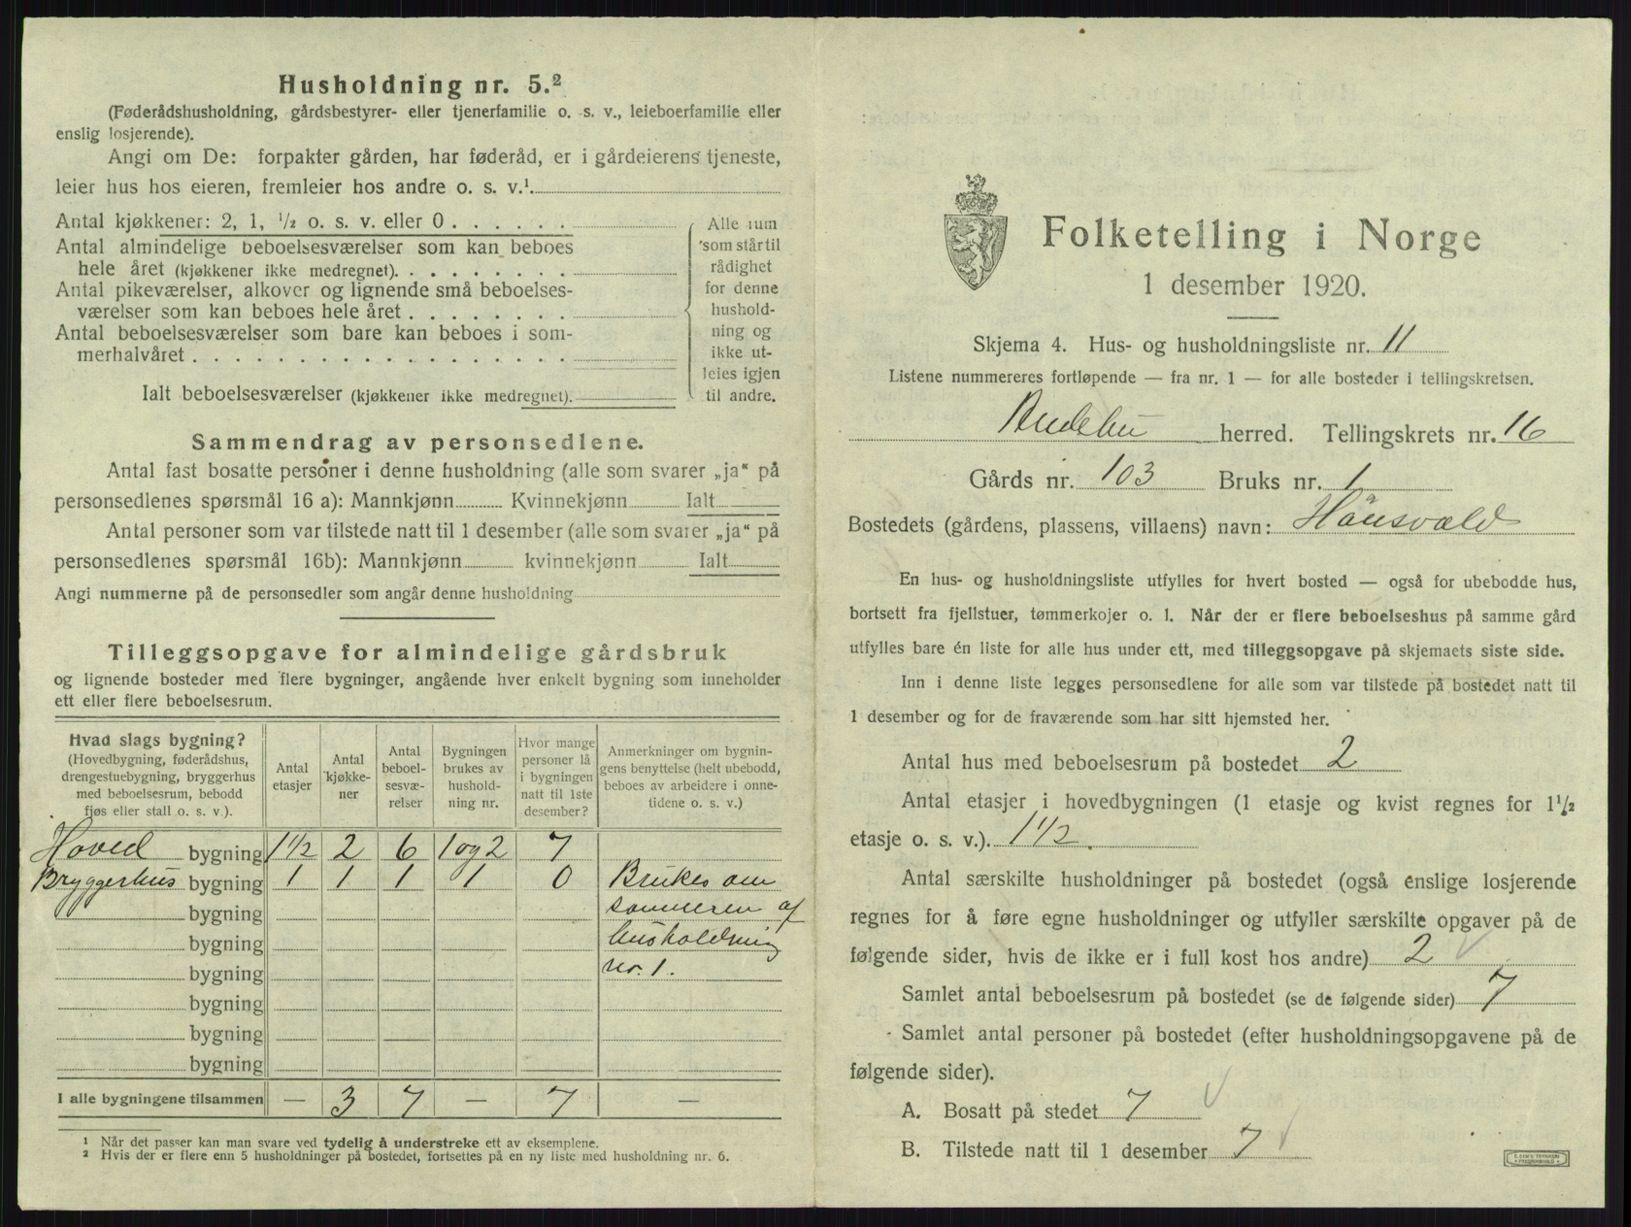 Husholdning nr. 5.²
(Føderådshusholdning, gårdsbestyrer- eller tjenerfamilie o. s. v., leieboerfamilie eller
enslig losjerende).
Angi om De: forpakter gården, har føderåd, er i gårdeierens tjeneste,
leier hus hos eieren, fremleier hos andre o. s. v.¹
Antal kjøkkener: 2, 1, ½ o. s. v. eller 0
Antal almindelige beboelsesværelser som kan beboes
hele året (kjøkkener ikke medregnet).
Antal pikeværelser, alkover og lignende små beboelses-
værelser som kan beboes hele året
Antal beboelsesværelser som bare kan beboes i som-
merhalvåret
Ialt beboelsesværelser (kjøkkener ikke medregnet).
Alle rum
som står til
rådighet
for denne
hushold-
ning og
ikke ut-
leies igjen
til andre.
Sammendrag av personsedlene.
Antal fast bosatte personer i denne husholdning (alle som svarer „ja“ på
personsedlenes spørsmål 16 a): Mannkjønn Kvinnekjønn Ialt
Antal personer som var tilstede natt til 1 desember (alle som svarer „ja“ på
personsedlenes spørsmål 16b): Mannkjønn kvinnekjønn Ialt
Angi nummerne på de personsedler som angår denne husholdning
Tilleggsopgave for almindelige gårdsbruk
og lignende bosteder med flere bygninger, angående hver enkelt bygning som inneholder
ett eller flere beboelsesrum.
Hvad slags bygning?
(Hovedbygning, føderådshus,
drengestuebygning, bryggerhus
med beboelsesrum, bebodd
fjøs eller stall o. s. v.).
Antal
etasjer
Antal
kjøkke-
ner
Antal
beboel-
sesvæ-
relser
Bygningen
brukes av
hushold-
ning nr.
Hvor mange
personer lå
i bygningen
natt til 1ste
desember?
Anmerkninger om bygnin-
gens benyttelse (helt ubebodd,
beboes av arbeidere i onne-
tidene o. s. v.)
Hoved bygning 1½ 2 6 1 og 2 7
Bryggerhus bygning 1 1 1 1 0 Brukes om
bygning sommeren af
bygning husholdning
bygning nr. 1.
bygning
bygning
bygning
I alle bygningene tilsammen — 3 7 — 7 —
¹ Når det passer kan man svare ved tydelig å understreke ett av eksemplene.
² Hvis der er flere enn 5 husholdninger på bostedet, fortsettes på en ny liste med husholdning nr. 6.
Folketelling i Norge
1 desember 1920.
Skjema 4. Hus- og husholdningsliste nr. 11
Listene nummereres fortløpende — fra nr. 1 — for alle bosteder i tellingskretsen.
Andebu herred. Tellingskrets nr. 16
Gårds nr. 103 Bruks nr. 1
Bostedets (gårdens, plassens, villaens) navn: Hånsvald
En hus- og husholdningsliste utfylles for hvert bosted — også for ubebodde hus,
bortsett fra fjellstuer, tømmerkojer o. l. Når der er flere beboelseshus på samme gård
utfylles bare én liste for alle hus under ett, med tilleggsopgave på skjemaets siste side.
Inn i denne liste legges personsedlene for alle som var tilstede på bostedet natt til
1 desember og for de fraværende som har sitt hjemsted her.
Antal hus med beboelsesrum på bostedet 2
Antal etasjer i hovedbygningen (1 etasje og kvist regnes for 1½
etasje o. s. v.). 1½.
Antal særskilte husholdninger på bostedet (også enslige losjerende
regnes for å føre egne husholdninger og utfyller særskilte opgaver på de
følgende sider, hvis de ikke er i full kost hos andre) 2
Samlet antal beboelsesrum på bostedet (se de følgende sider) 7
Samlet antal personer på bostedet (efter husholdningsopgavene på de
følgende sider).
A. Bosatt på stedet 7
B. Tilstede natt til 1 desember 7